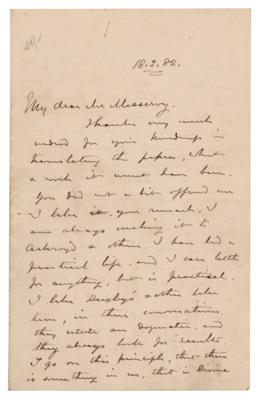 18.2.82.
My dear Mr Messervy.
Thanks very much
indeed for your kindness in
translating the papers, what
a work it must have been.
You did not a bit offend me
I like your remark, I
am always making it to
& others I have led a
practical life, and I care little
for anything, but is practical.
I like Huxley & others like
him, in their conversations,
they are dogmatic, and
they always look for results.
I go on this principle, that there
is something in us, that is Divine